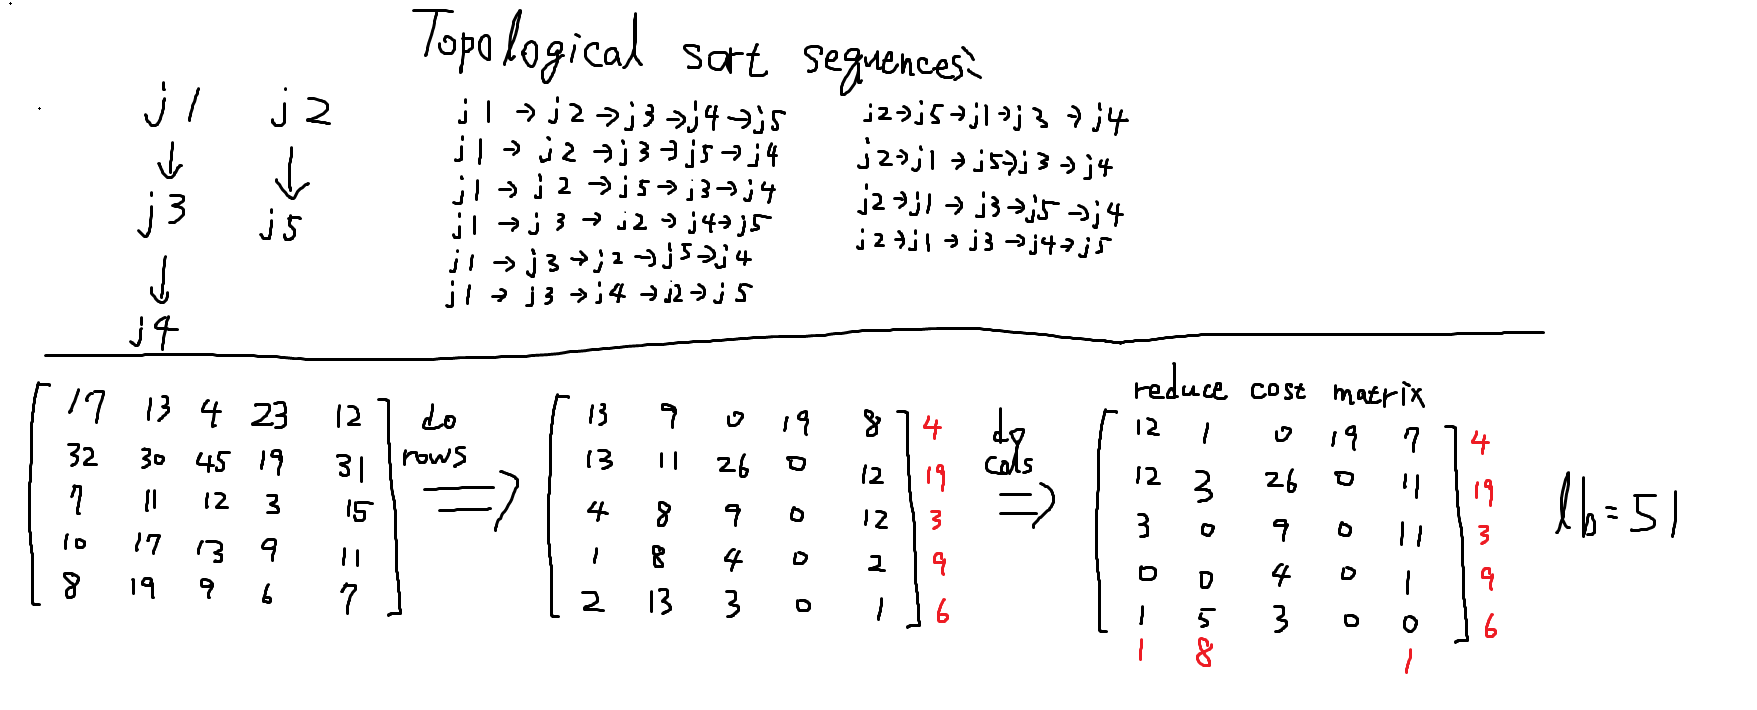 Topological sort sequences:
j1 j2
↓ ↓
j3 j5
↓
j4
j1 → j2 → j3 → j4 → j5
j1 → j2 → j3 → j5 → j4
j1 → j2 → j5 → j3 → j4
j1 → j3 → j2 → j4 → j5
j1 → j3 → j2 → j5 → j4
j1 → j3 → j4 → j2 → j5
j2 → j5 → j1 → j3 → j4
j2 → j1 → j5 → j3 → j4
j2 → j1 → j3 → j5 → j4
j2 → j1 → j3 → j4 → j5
17 13 4 23 12
32 30 45 19 31
7 11 12 3 15
10 17 13 9 11
8 19 9 6 7
do
rows
⇒
13 9 0 19 8 4
13 11 26 0 12 19
4 8 9 0 12 3
1 8 4 0 2 9
2 13 3 0 1 6
do
cols
⇒
reduce cost matrix
12 1 0 19 7 4
12 3 26 0 11 19
3 0 9 0 11 3
0 0 4 0 1 9
1 5 3 0 0 6
1 8 1
lb=51